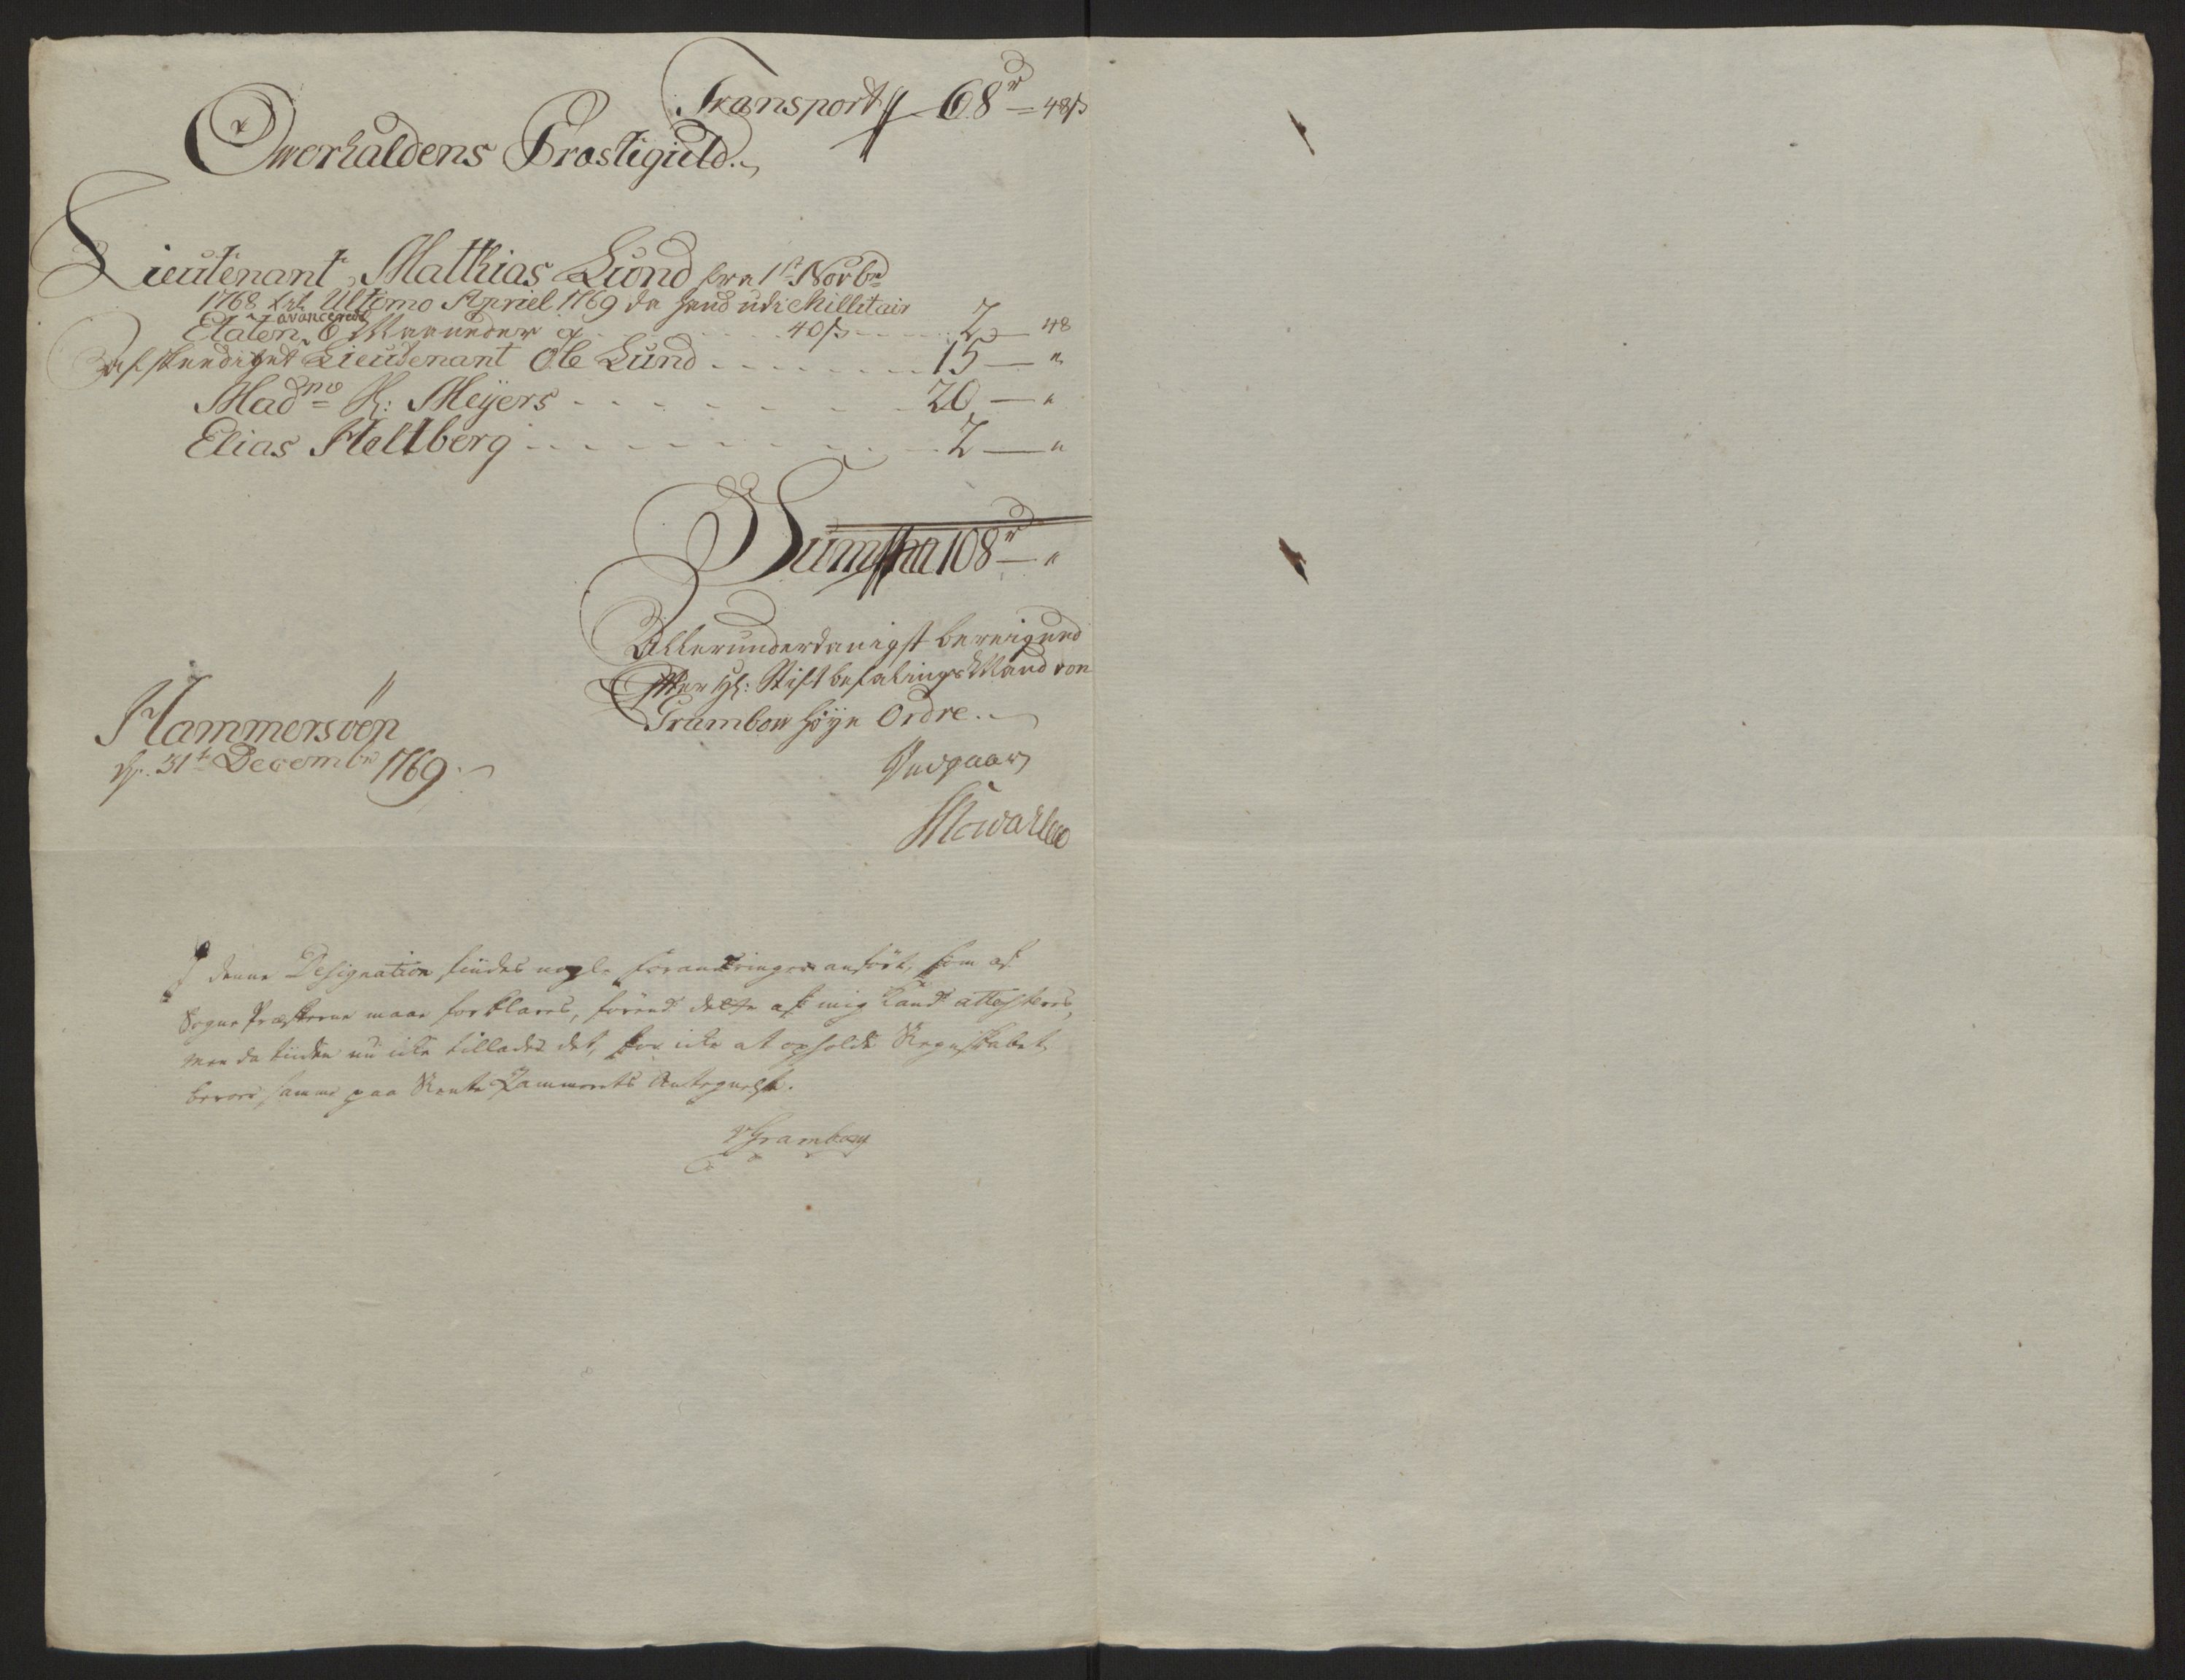 Transport 68 rd — 48 ß
Owerhaldens Præstigield.
Lieutenant Mathias Lund fra 1st Novbr
1768 til Ultimo Apriel 1769 da hand udi Millitair
Etaten avancerede 6 Maaneder a 40 ß 2 — 48
Afskeediget Lieutenant Ole Lund 15 — "
Madme K: Meÿers 20 — "
Elias Heltberg 2 — "
Summa 108 rd — "
Allerunderdanigst
Efter Hr: Stiftbefalings Mand von
Grambow høÿe Ordre.
Hammersøen
d. 31t Decembr 1769.
I denne Designation findes nogle forandringer anført, som af
Sogne Præsterne maae forklares, førend dette af mig kand attesteres,
men da tiiden nu icke tillader det, for icke at opholde Regnskabet
beroer samme paa Rente Kammerets Antegnelse.
vGrambow